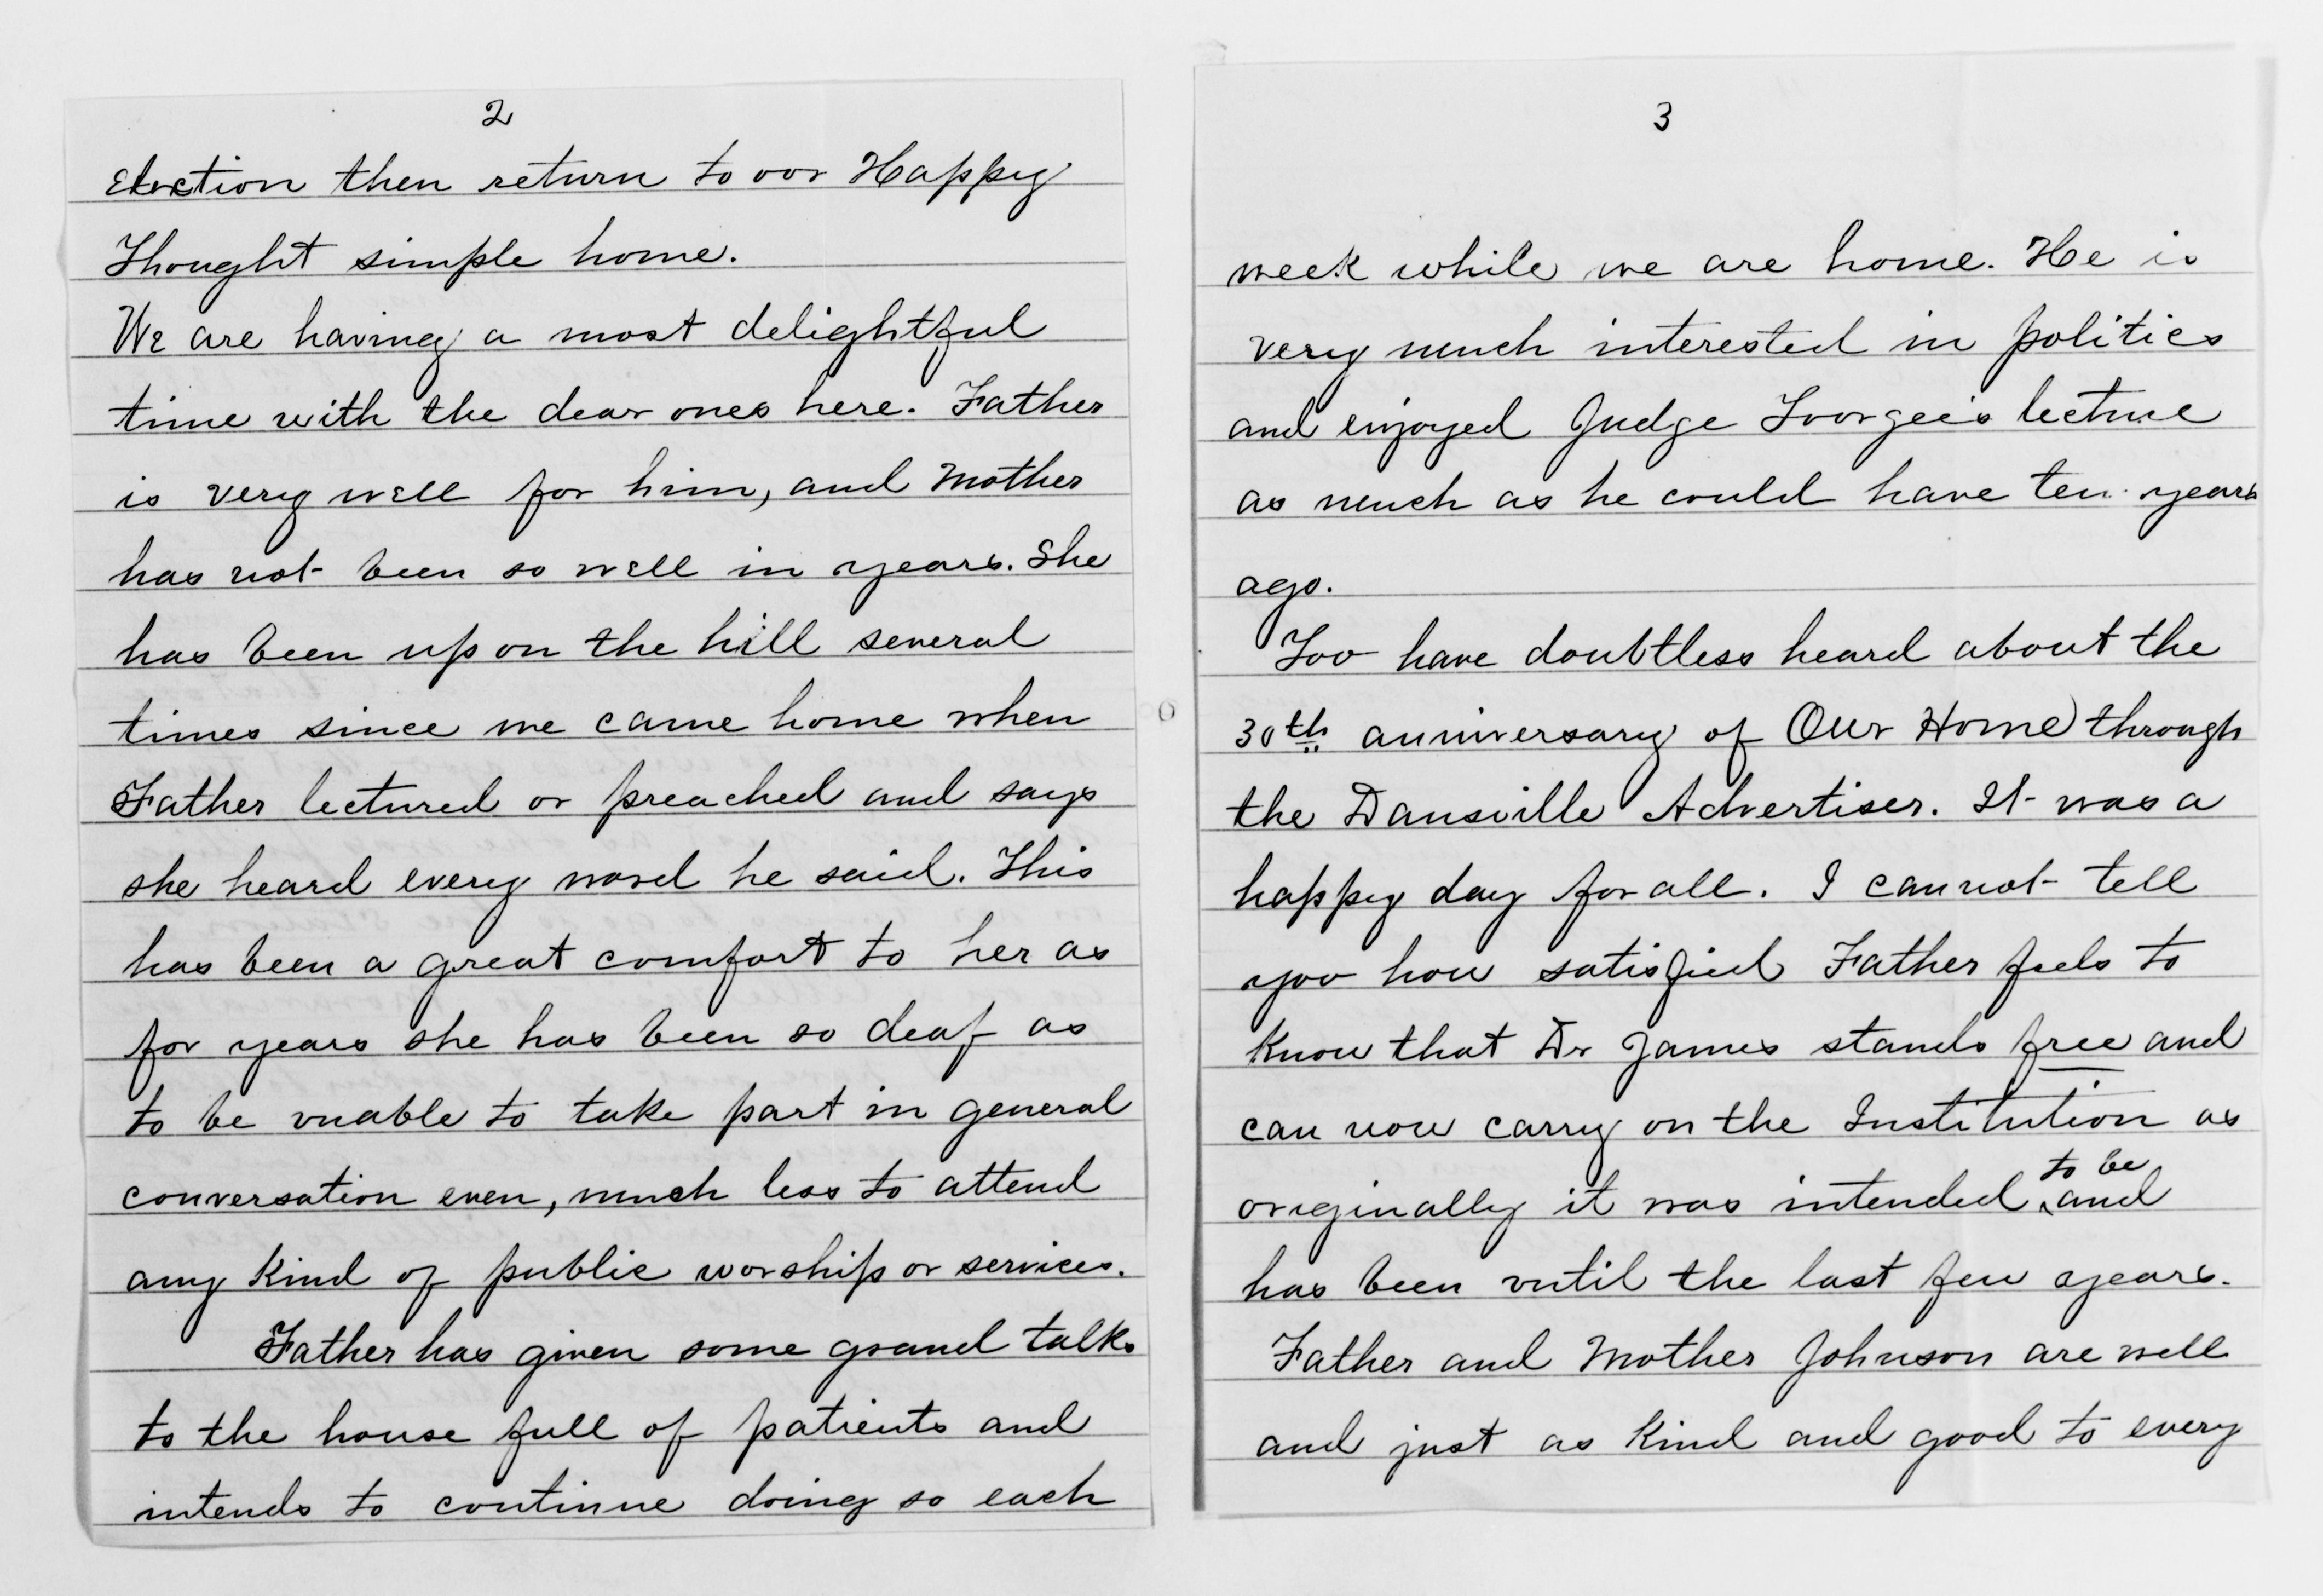 2
Election then return to our Happy
Thought simple home.
We are having a most delightful
time with the dear ones here. Father
is very well for him, and Mother
has not been so well in years. She
has been up on the hill several
times since we came home when
Father lectured or preached and says
she heard every word he said. This
has been a great comfort to her as
for years she has been so deaf as
to be unable to take part in general
conversation even, much less to attend
any kind of public worship or services.
Father has given some grand talks
to the house full of patients and
intends to continue doing so each
3
week while we are home. He is
very much interested in politics
and enjoyed Judge Tourgee's lecture
as much as he could have ten years
ago.
You have doubtless heard about the
30th anniversary of Our Home through
the Dansville Advertiser. It was a
happy day for all. I cannot tell
you how satisfied Father feels to
know that Dr James stands free and
can now carry on the Institution as
originally it was intended to be and
has been until the last few years.
Father and Mother Johnson are well
and just as kind and good to every